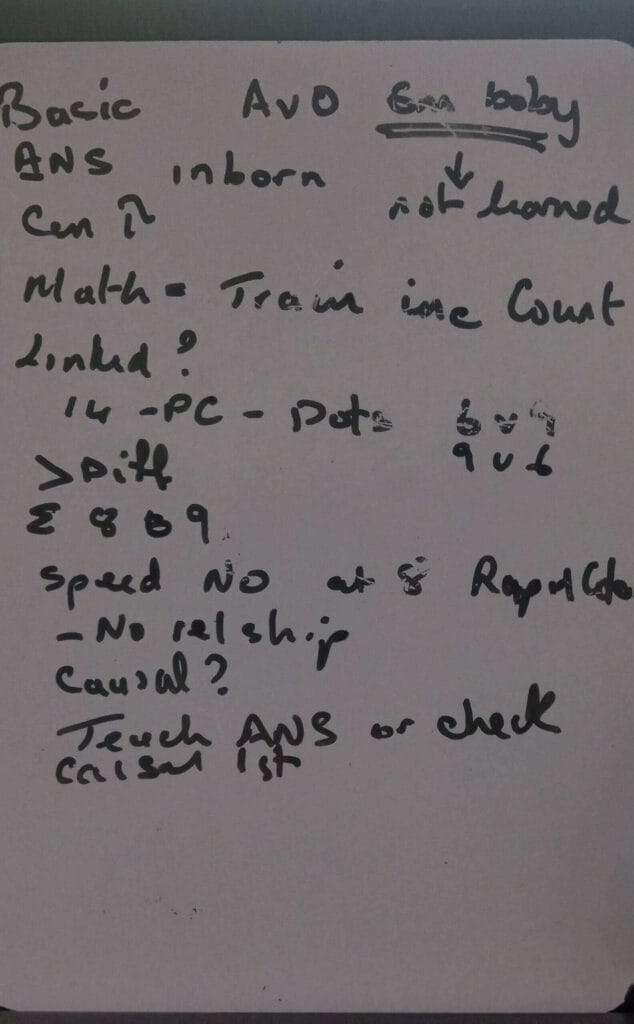 Basic AVO 6m baby
ANS inborn not learned
Can ↑
Math = Train inc Count
Linked?
14 - PC - Dots 6 v 9
9 v 6
> Diff
Σ 8 9
Speed NO at 8 Rapid
- No relship
Causal?
Teach ANS or check
causal 1st